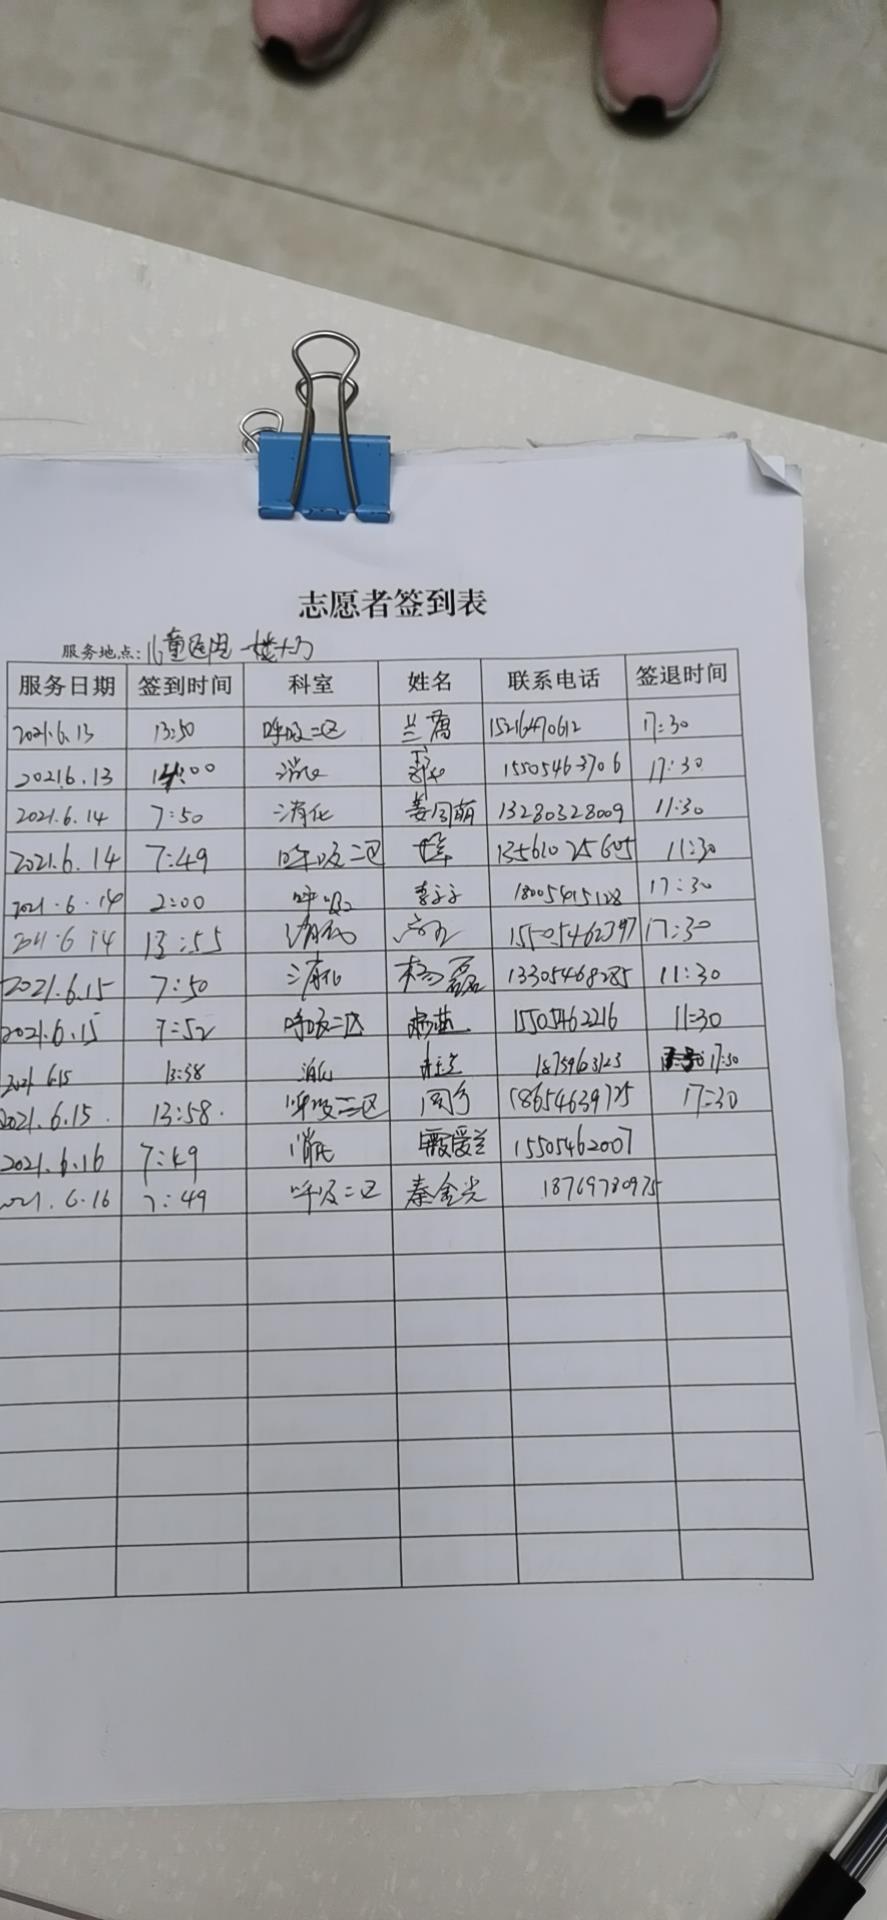 志愿者签到表
服务地点: 儿童医院一楼大厅
服务日期 签到时间 科室 姓名 联系电话 签退时间
2021.6.13 13:50 呼吸二区 兰 15216470612 17:30
2021.6.13 14:00 消化 15505463706 17:30
2021.6.14 7:50 消化 姜同萌 13280328009 11:30
2021.6.14 7:49 呼吸二区 13561025605 11:30
2021.6.14 2:00 呼吸 18005415128 17:30
2021.6.14 13:55 消化 15505462397 17:30
2021.6.15 7:50 消化 杨磊 13305468285 11:30
2021.6.15 7:52 呼吸二区 15505462216 11:30
2021.6.15 13:58 消化 17:30
2021.6.15. 13:58. 呼吸二区 18654639725 17:30
2021.6.16 7:49 消化 15505462007
2021.6.16 7:49 呼吸二区 秦金光 18769780975